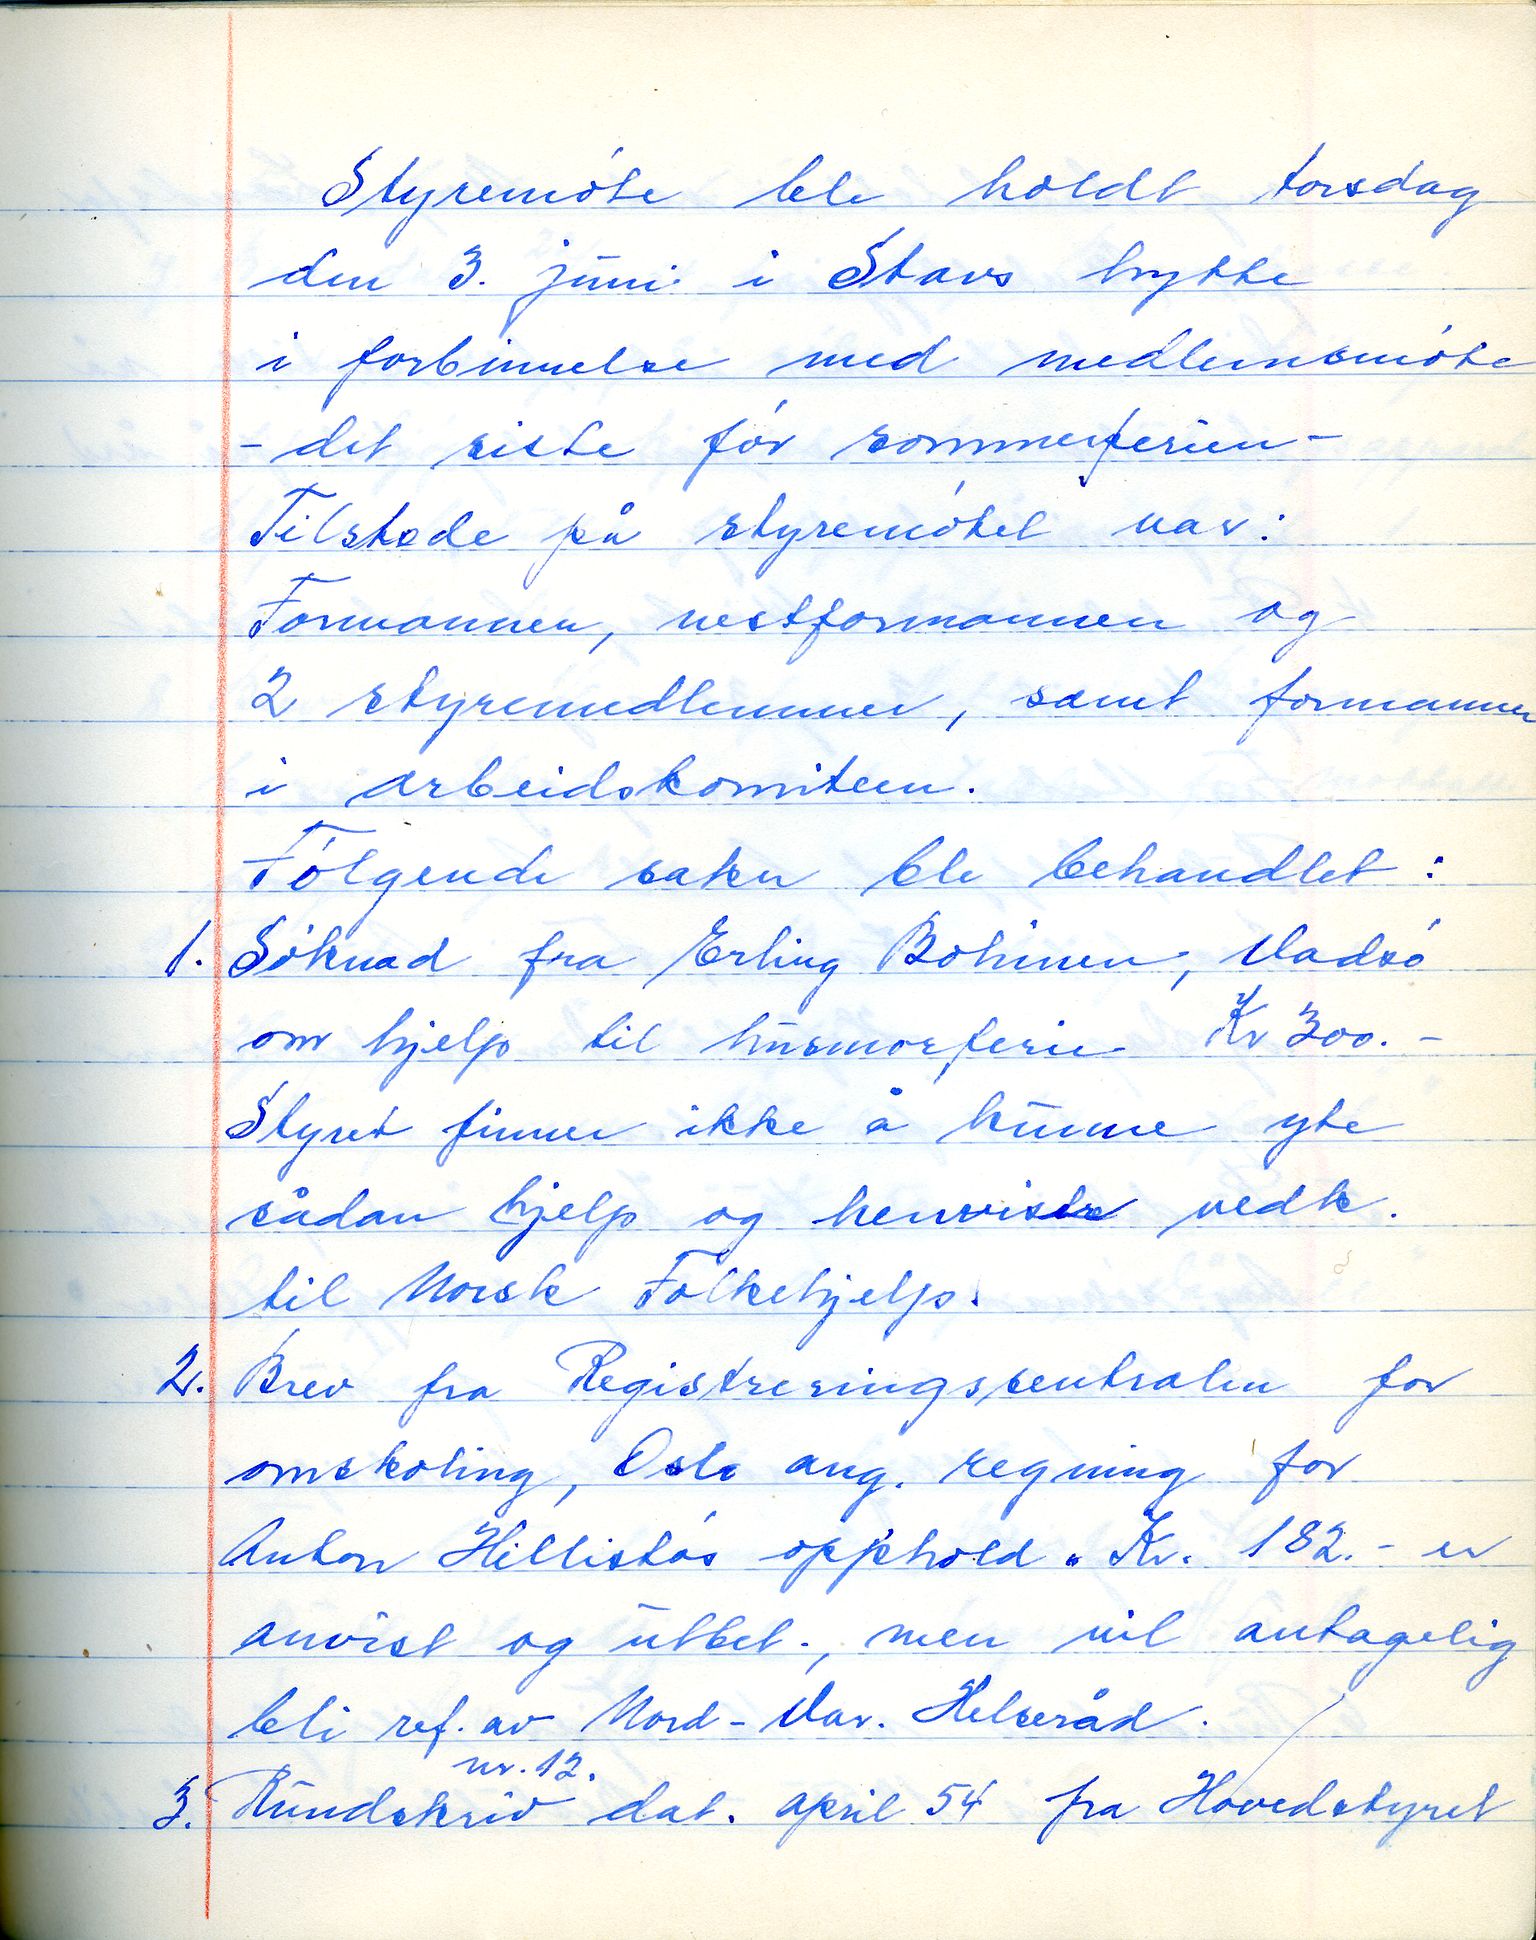 Styremöte ble holdt torsdag
den 3. juni i Stavs hytte
i forbinnelse med medlemsmöte
- det siste för sommerferien -
Tilstede på styremötet var:
Formannen, nestformannen og
2 styremedlemmer, samt formannen
i arbeidskomiteen.
Fölgende saker ble behandlet:
1. Söknad fra Erling Bohinen, Vadsö
om hjelp til husmorferie Kr 300.-
Styret finner ikke å kunne yte
sådan hjelp og henviste vedk.
til Norsk Folkehjelp.
2. Brev fra Registreringssentralen for
omskoling, Oslo ang. regning for
Anton Hillistös opphold. Kr. 182.- er
anvist og utbet., men vil antagelig
bli ref. av Nord-Var. Helseråd.
nr. 12.
3. Rundskriv dat. april 54 fra Hovedstyret